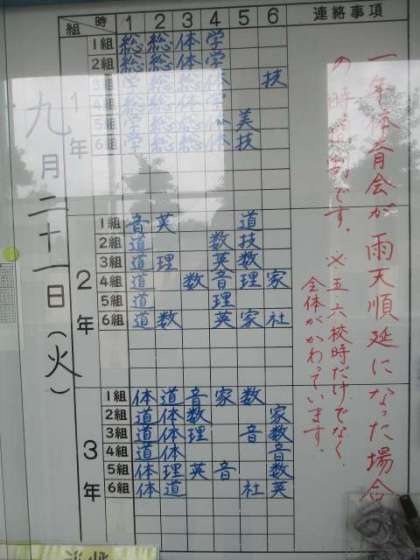 組 時 1 2 3 4 5 6 連絡事項
九月二十一日(火)
1年
1組 総 総 体 学
2組 総 総 体 学
3組 学 総 総 体 技
4組 総 総 学
5組 学 総 総 美
6組 学 総 総 体 技
2年
1組 音 英 道
2組 道 数 技
3組 道 理 英 数
4組 道 数 音 理 家
5組 道 理
6組 道 数 英 家 社
3年
1組 体 道 音 家 数
2組 道 体 数 家
3組 道 体 理 音 数
4組 道 体 音
5組 体 理 英 音 数
6組 体 道 社 英
一年体育会が雨天順延になった場合
の時間割です。※五六校時だけでなく、
全体がかわっています。